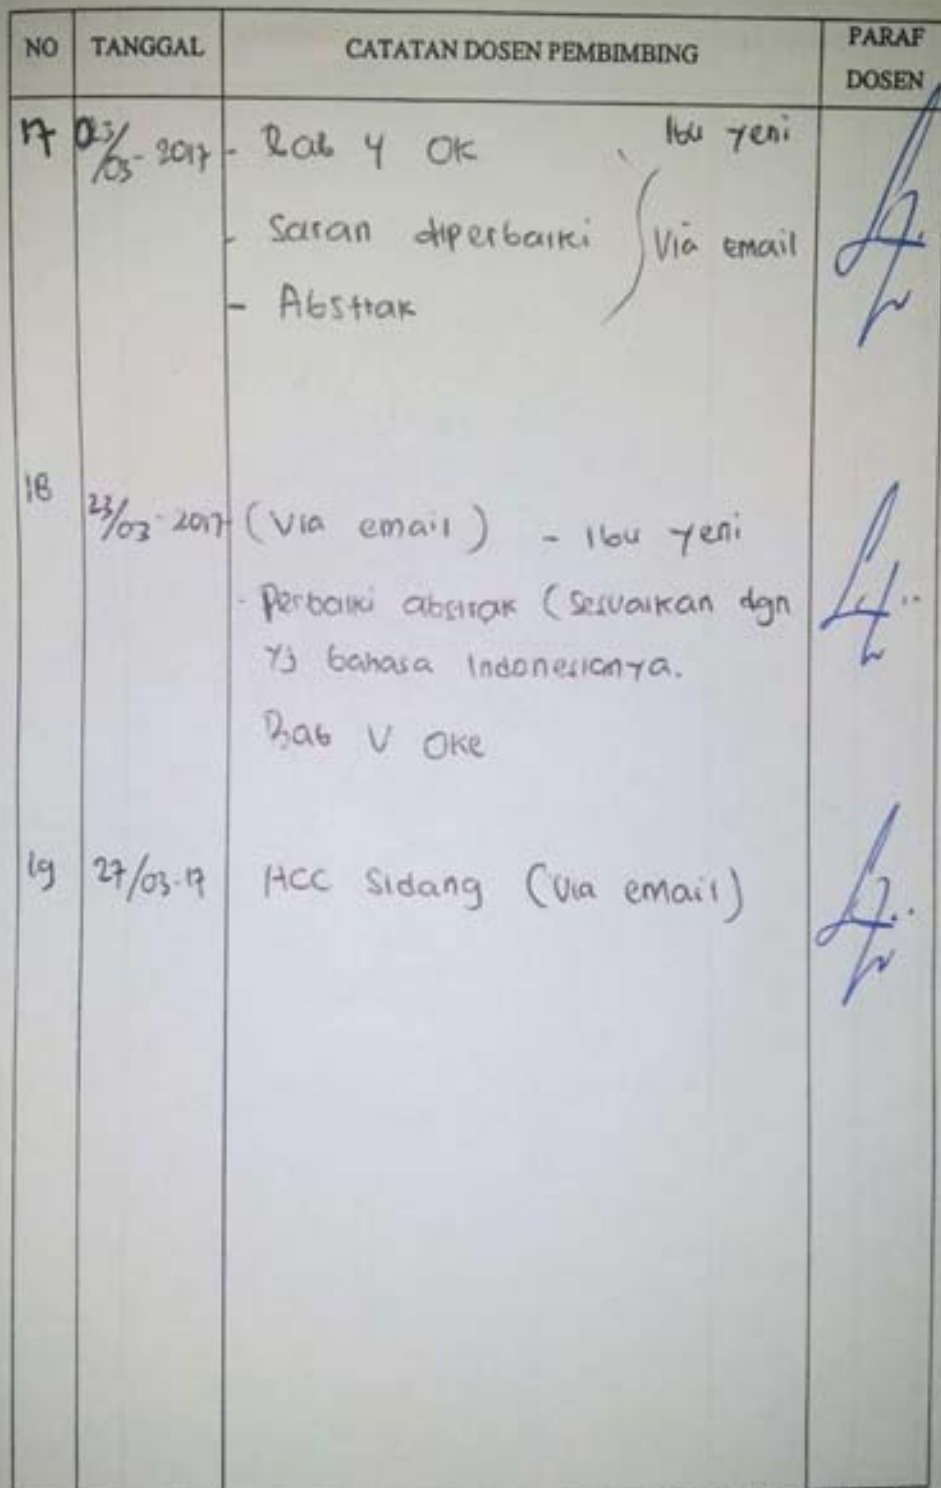 NO TANGGAL CATATAN DOSEN PEMBIMBING PARAF DOSEN
17 /03-2017 - Bab 4 OK Ibu yeni
- Saran diperbaiki Via email
- Abstrak
18
23/03-2017 (Via email) - Ibu yeni
- Perbaiki abstrak (Sesuaikan dgn
yg bahasa Indonesianya.
Bab V Oke
19 27/03-17 ACC Sidang (Via email)